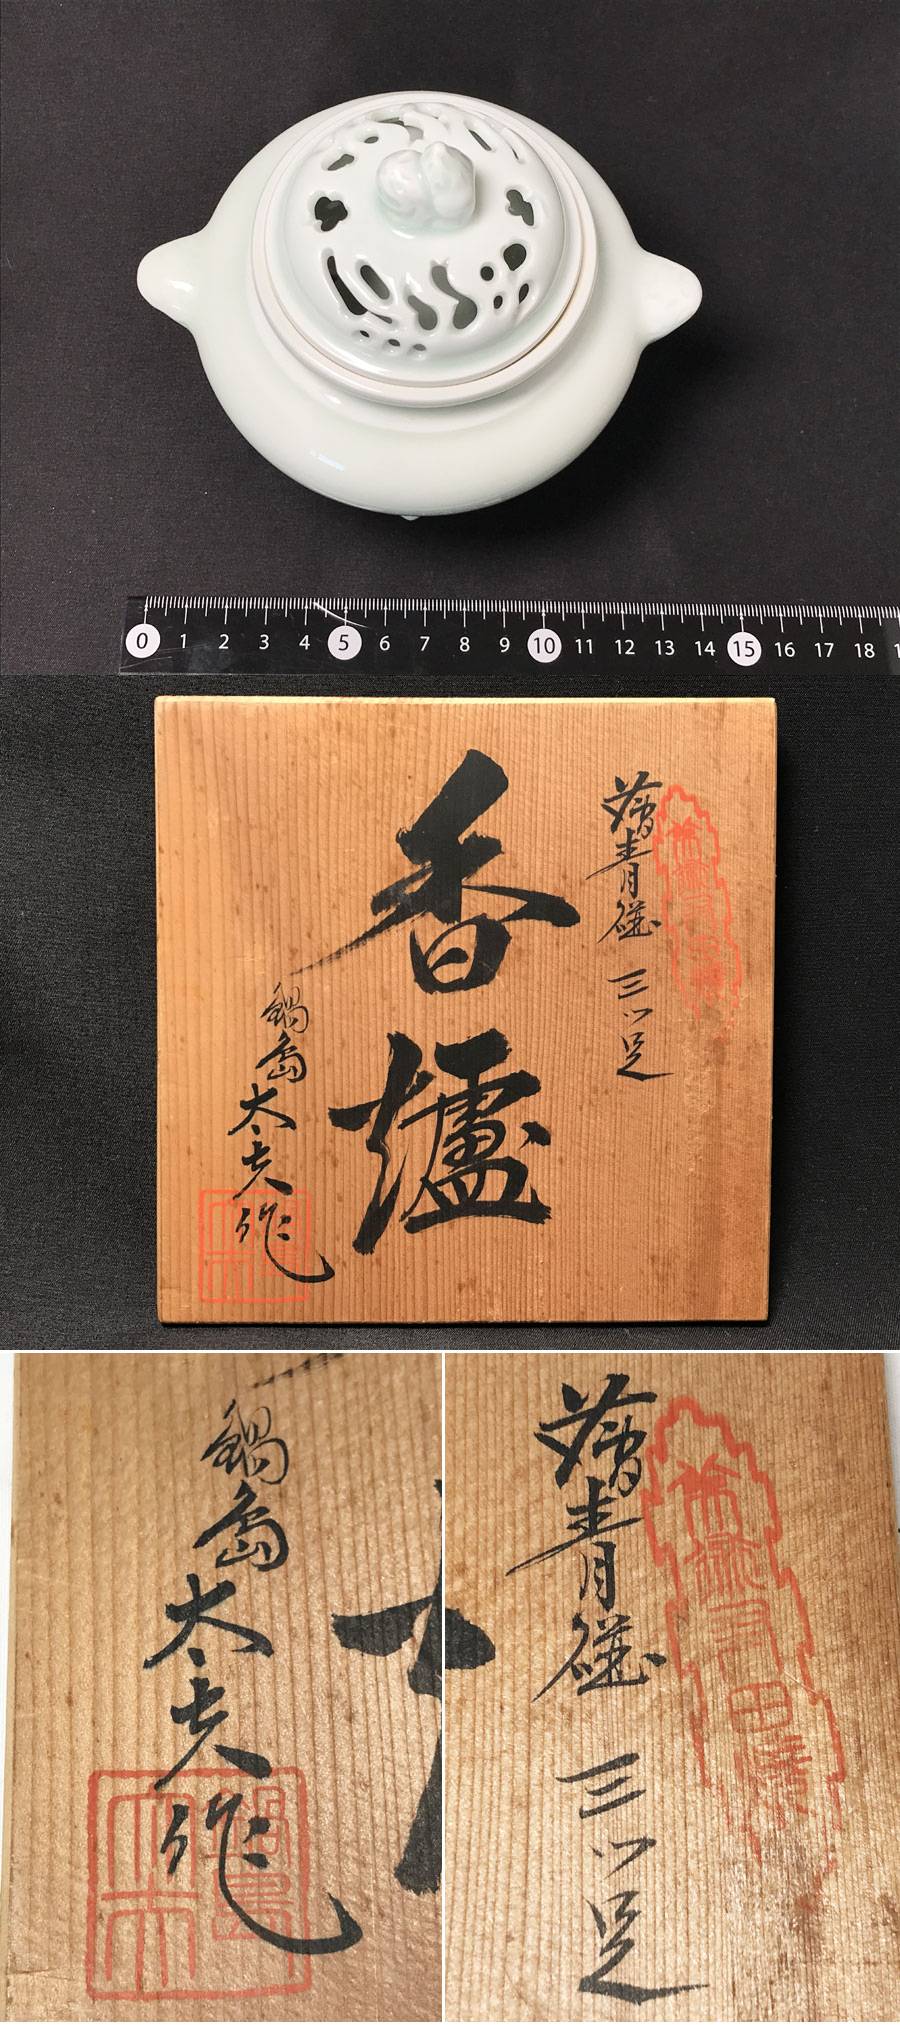 0 1 2 3 4 5 6 7 8 9 10 11 12 13 14 15 16 17 18
青磁 三ツ足
香爐
鍋島
太夫作
鍋島
太夫作
青磁
三ツ足